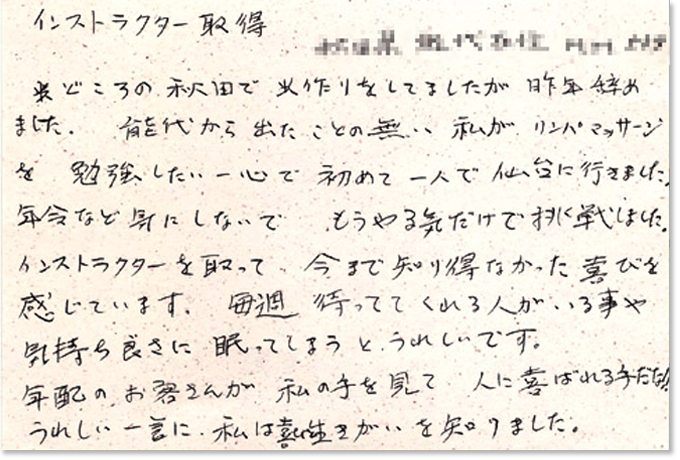 インストラクター取得
米どころの秋田で米作りをしてましたが 昨年辞め
ました。 能代から出たことの無い 私が リンパマッサージ
を 勉強したい一心で 初めて一人で 仙台に行きました。
年令など気にしないで もうやる気だけで挑戦しました。
インストラクターを取って、今まで知り得なかった喜びを
感じています。 毎週 待っててくれる人がいる事や
気持ち良さに 眠ってしまうと、うれしいです。
年配の お客さんが 私の手を見て 人に喜ばれる手だな!
うれしい一言に、私は 生きがいを知りました。